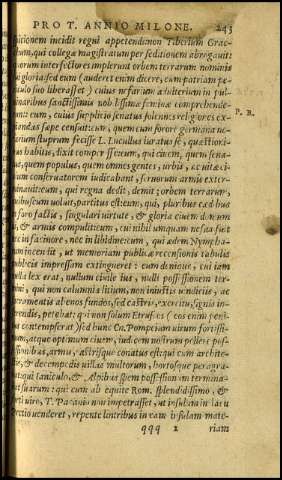 PRO T. ANNIO MILONE. 243
sitionem incidit regni appetendi non Tiberium Grac-
chum, qui collegæ magistratum per seditionem abrogauit:
quorum interfectores impleruut orbem terrarum nominis
sui gloria: sed eum (auderet enim dicere, cum patriam pe-
riculo suo liberasset) cuius nefarium adulterium in pul-
uinaribus sanctissimis nobilissimæ feminæ comprehende-
runt: eum, cuius supplicio senatus solennes religiones ex-
piandas sæpe censuit: eum, quem cum sorore germana ne-
farium stuprum fecisse L. Lucullus iuratus se, quæstioni-
bus habitis, dixit comperisse: eum, qui ciuem, quem sena-
tus, quem populus, quem omnes gentes, urbis, ac uitæ ci-
uium conseruatorem iudicabant, seruorum armis exter-
minauit: eum, qui regna dedit, ademit: orbem terrarum,
quibuscum uoluit, partitus est: eum, qui, pluribus cædibus
in foro factis, singulari uirtute, & gloria ciuem domum
ui, & armis compulit: eum, cui nihil umquam nefas fuit
nec in facinore, nec in libidine: eum, qui ædem Nympha-
rum incendit, ut memoriam publicam recensionis tabulis
publicis impressam extingueret: eum denique, cui iam
nulla lex erat, nullum ciuile ius, nulli possessionum ter-
mini, qui non calumnia litium, non iniustis uindiciis, ac
sacramentis alienos fundos, sed castris, exercitu, signis in-
ferendis, petebat: qui non solum Etruscos (eos enim peni-
tus contempserat) sed hunc En. Pompeium uirum fortissi-
mum, atque optimum ciuem, iudicem nostrum pellere pos-
sessionibus, armis, castrisque conatus est: qui cum architec-
tis, & decempedis uillas multorum, hortosque peragra-
bat: qui Ianiculo, & Alpibus spem possessionum termina-
rat suarum: qui cum ab equite Rom. splendidissimo, &
forti uiro, T. Pacauio non impetrasset, ut insulam in lacu
Prelio uenderet, repente lintribus in eam insulam mate-
qqq 2 riam
P. R.